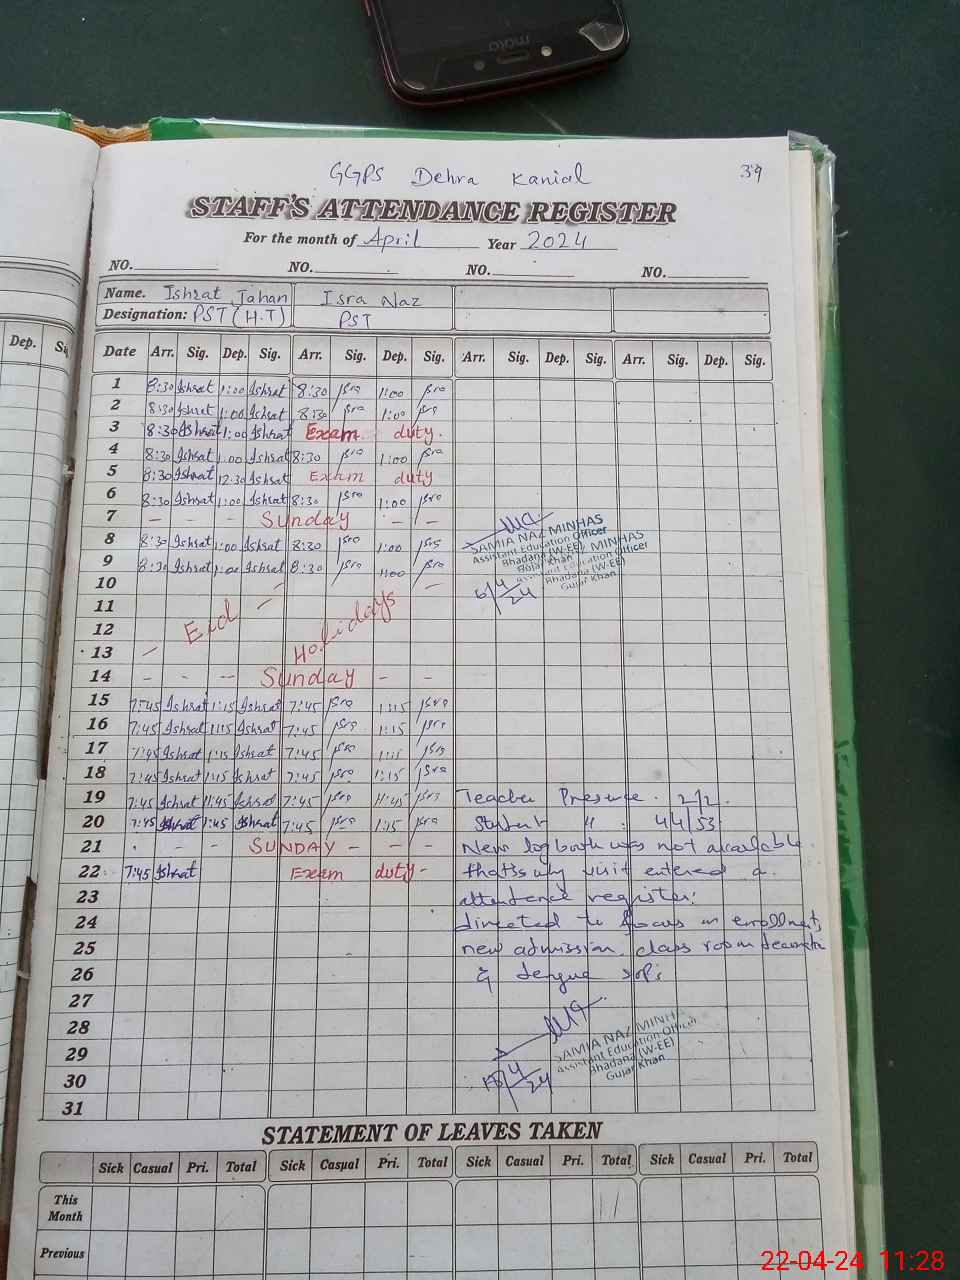 moto
GGPS Dehra Kanial 39
STAFF'S ATTENDANCE REGISTER
For the month of April Year 2024
NO. NO. NO. NO.
Name. Ishrat Jahan Isra Naz
Designation: PST (H.T) PST
Dep. Date Arr. Sig. Dep. Sig. Arr. Sig. Dep. Sig. Arr. Sig. Dep. Sig. Arr. Sig. Dep. Sig.
1 8:30 Ishrat 1:00 Ishrat 8:30 Isra 1:00 Isra
2 8:30 Ishrat 1:00 Ishrat 8:30 Isra 1:00 Isra
3 8:30 Ishrat 1:00 Ishrat Exam duty.
4 8:30 Ishrat 1:00 Ishrat 8:30 Isra 1:00 Isra
5 8:30 Ishrat 12:30 Ishrat Exam duty
6 8:30 Ishrat 1:00 Ishrat 8:30 Isra 1:00 Isra
7 - - - Sunday - -
8 8:30 Ishrat 1:00 Ishrat 8:30 Isra 1:00 Isra
9 8:30 Ishrat 1:00 Ishrat 8:30 Isra 1:00 Isra
SAMIA NAZ MINHAS
Assistant Education Officer
Bhadana (W-EE)
Gujar Khan
MINHAS
Assistant Education Officer
Bhadana (W-EE)
Gujar Khan
4/24
10
11
Eid Holidays
12
13
14 - - - Sunday - -
15 7:45 Ishrat 1:15 Ishrat 7:45 Isra 1:15 Isra
16 7:45 Ishrat 1:15 Ishrat 7:45 Isra 1:15 Isra
17 7:45 Ishrat 1:15 Ishrat 7:45 Isra 1:15 Isra
18 7:45 Ishrat 1:15 Ishrat 7:45 Isra 1:15 Isra
19 7:45 Ishrat 11:45 Ishrat 7:45 Isra 11:45 Isra Teacher Presence. 2/2.
20 7:45 Ishrat 1:45 Ishrat 7:45 Isra 1:15 Isra Student " : 44/53
21 - - SUNDAY - - - New logbook was not available.
22 7:45 Ishrat Exam duty - that's why visit entered
23 attendence register.
24 directed to focus on enrollment,
25 new admission, class room
26 & dengue SOPs
27
28
29
30
31
SAMIA NAZ MINHA
Assistant Education Officer
Bhadana (W-EE)
Gujar Khan
4/24
STATEMENT OF LEAVES TAKEN
Sick Casual Pri. Total Sick Casual Pri. Total Sick Casual Pri. Total Sick Casual Pri. Total
This Month
Previous
22-04-24 11:28